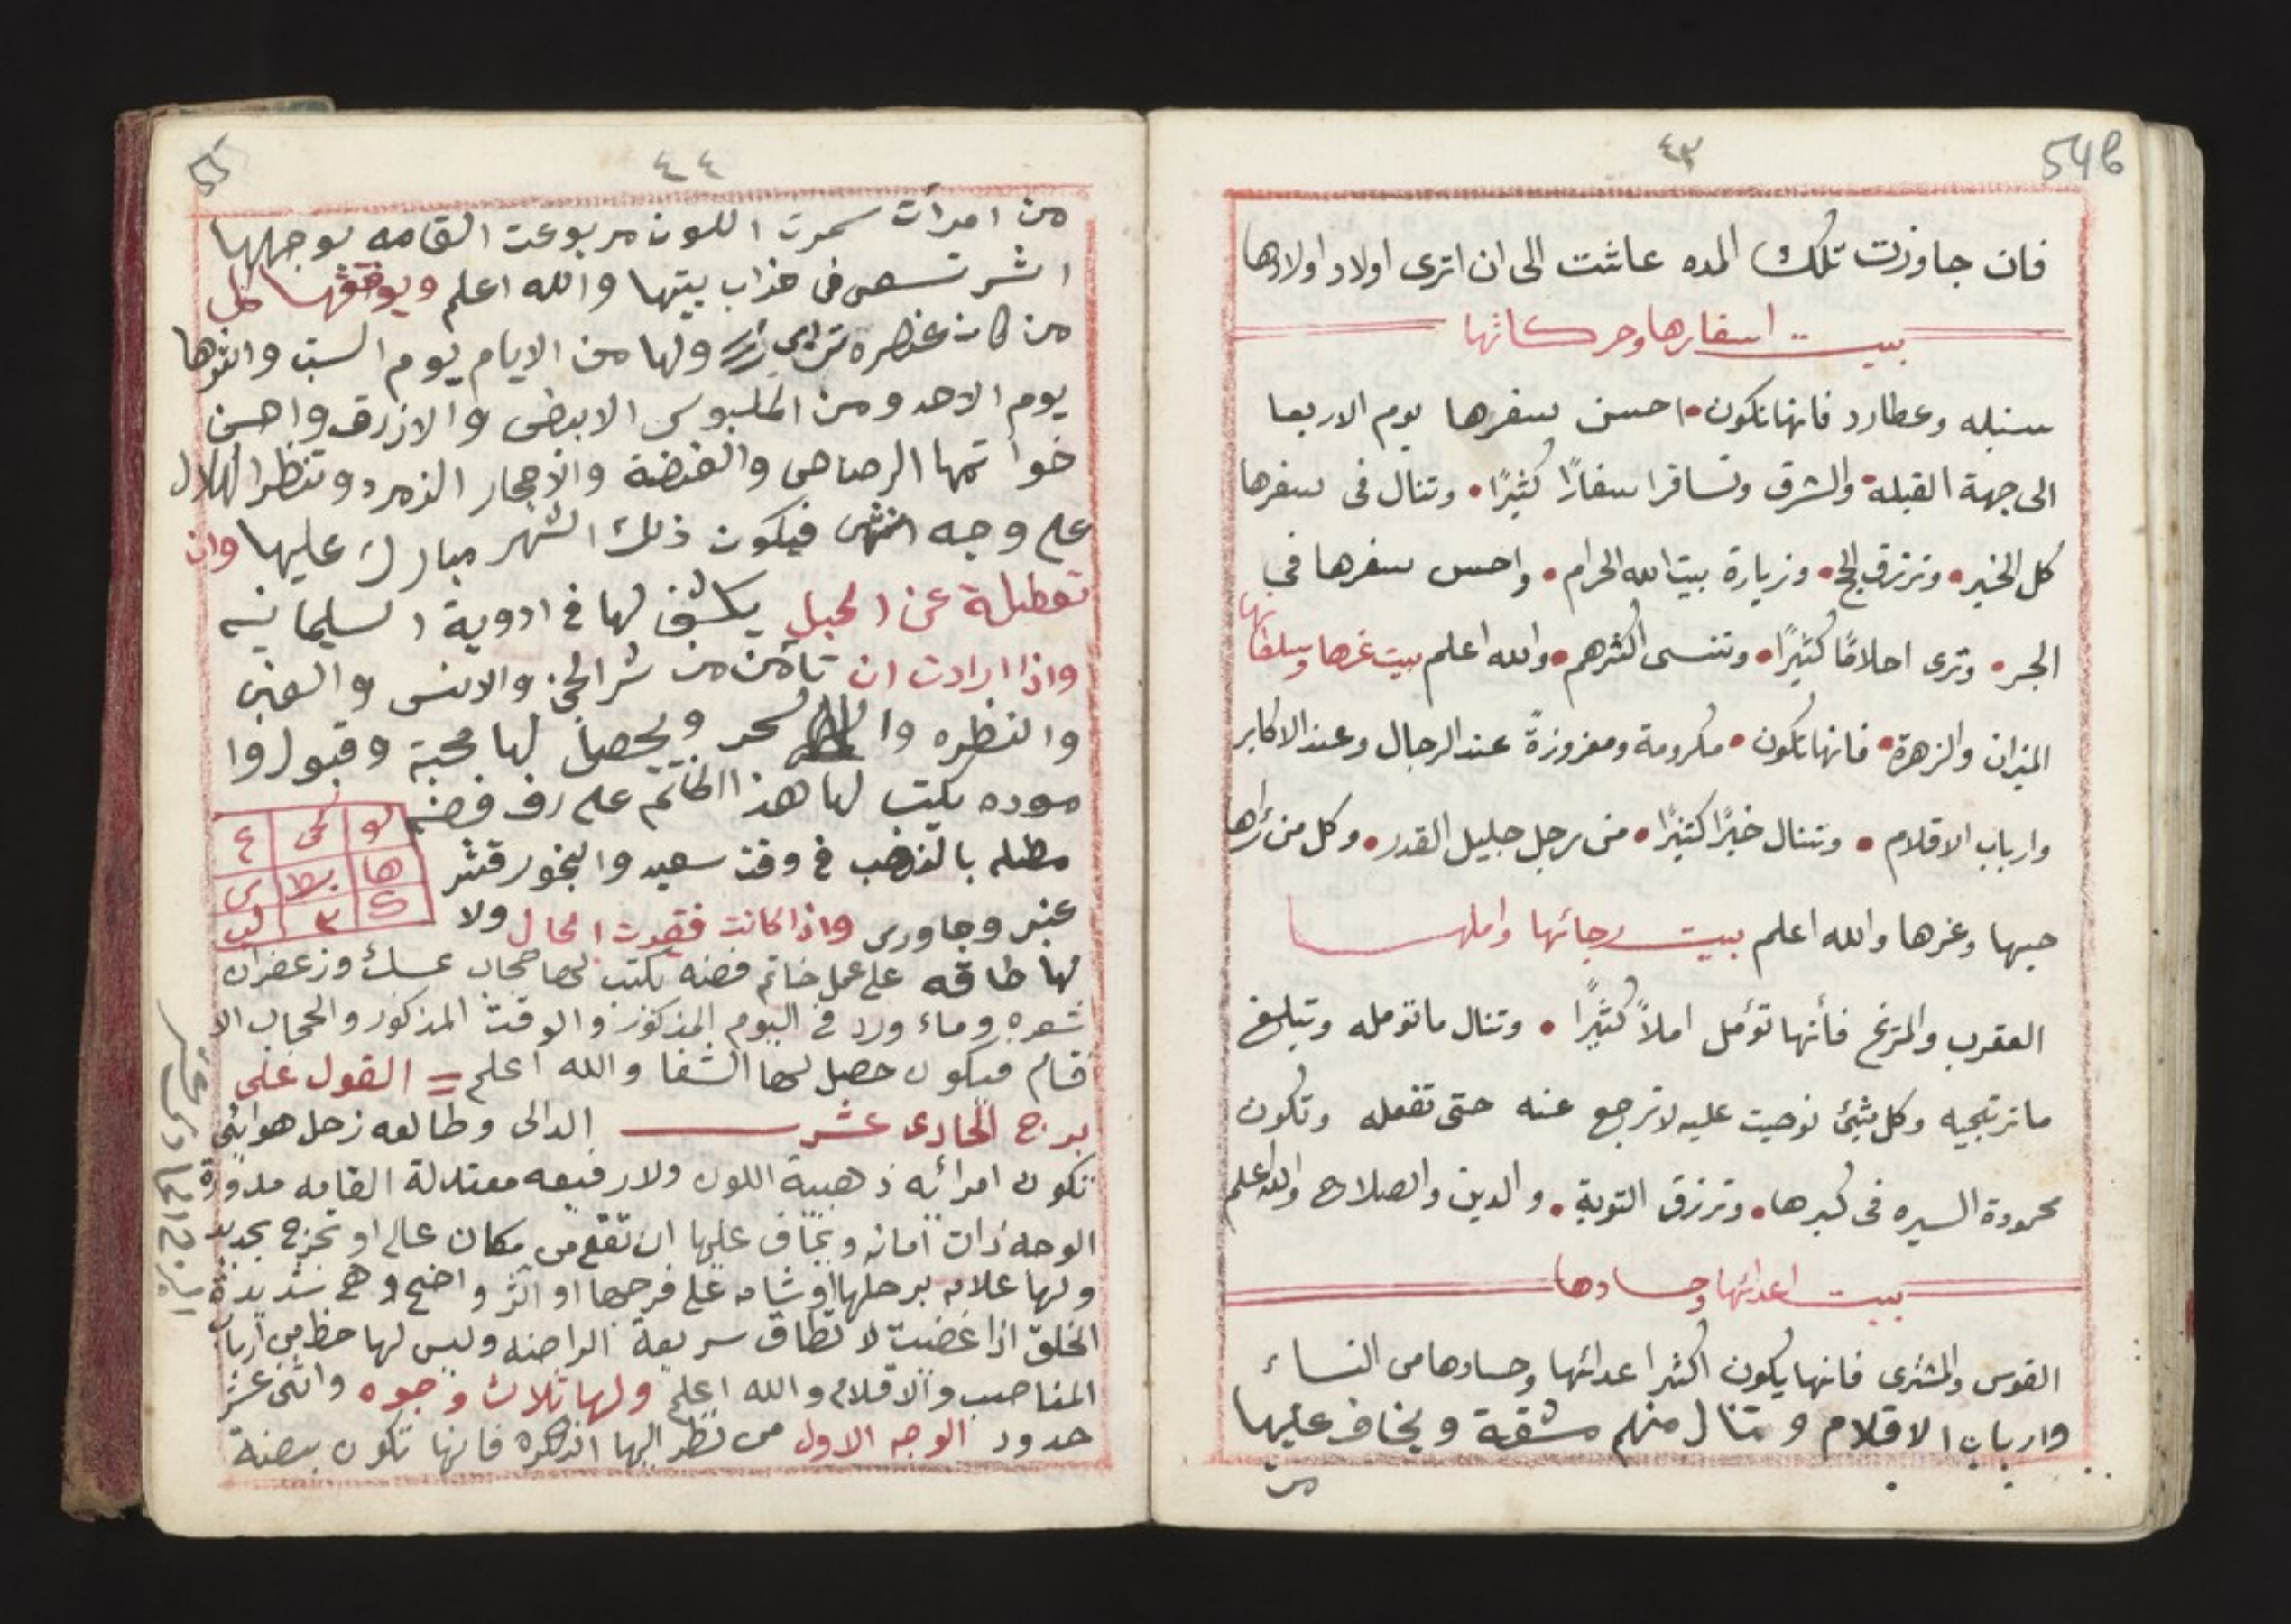 ٤٣
54b
فان جاوزت تلك المده عاشت الى ان اترى اولاد اولادها
بيت اسفارها وحركاتها
سنبله وعطارد فانها تكون احسن سفرها يوم الاربعا
الى جهة القبله والشرق وتسافر اسفارًا كثيرًا وتنال فى سفرها
كل الخير وترزق الحج وزيارة بيت الله الحرام واحسن سفرها في
البحر وترى احلامًا كثيرًا وتنسى اكثرهم والله اعلم بيت عزها وسلطانها
الميزان والزهرة فانها تكون مكرومة ومعزوزةً عند الرجال وعند الاكابر
وارباب الاقلام وتنال خيرًا كثيرًا من رجل جليل القدر وكل من رأها
حبها وعزها والله اعلم بيت رجائها واملها
العقرب والمريخ فأنها تؤمل املاً كثيرًا وتنال ما تومله وتبلغ
ما ترتجيه وكل شئ نوحيت عليه لا ترجع عنه حتى تفعله وتكون
محمودة السيره فى كبرها وترزق التوبة والدين والصلاح والله اعلم
بيت اعدائها وحسادها
القوس والمشترى فانها يكون اكثر اعدائها وحسادها من النساء
وارباب الاقلام وتنال منهم مشقة ويخاف عليها
من
٤٤
55
من امرأت سمرت اللون مربوعت القامه بوجهها
اثر تسعى فى خراب بيتها والله اعلم ويوافقها كل
من كان عنصره ترابى ولها من الايام يوم السبت وانثوها
يوم الاحد ومن الملبوس الابيض والازرق واحسن
خواتمها الرصاص والفضة والاحجار الزمرد وتنظر الهلال
على وجه انثى فيكون ذلك الشهر مبارك عليها وان
تعطلة عن الحبل يكشف لها في ادوية السليمانيه
واذا ارادت ان تأمن من شر الجن والانس والعين
والنظره والسحر ويحصل لها محبة وقبول وا
موده يكتب لها هذا الخاتم على رق فضه
مطله بالذهب في وقت سعيد والبخور قشر
عنبر وجاورى واذا كانت فقيرت الحال ولا
لها طاقه على عمل خاتم فضه يكتب لها حجاب بمسك وزعفران
شعره وماء ورد في اليوم المذكور والوقت المذكور والحجاب الا
قسام فيكون حصل لها الشفا والله اعلم = القول على
برج الحادى عشر الدالى وطالعه زحل هوائى
تكون امرائه ذهبية اللون ولا رفيعه معتدلة القامه مدورة
الوجه ذات امانه ويخاف عليها ان تقع من مكان عالى او تجرح بحديد
ولها علامه برجلها او شامه على فرجها او اثر واضح وهى شديدة
الخلق اذا غضبت لا تطاق سريعة الراضنه وليس لها حظ من ارباب
المناصب والاقلام والله اعلم ولها ثلاث وجوه واثنى عشر
حدود الوجه الاول من نظر اليها الذكره فانها تكون بيضة
البرج الحادى عشر